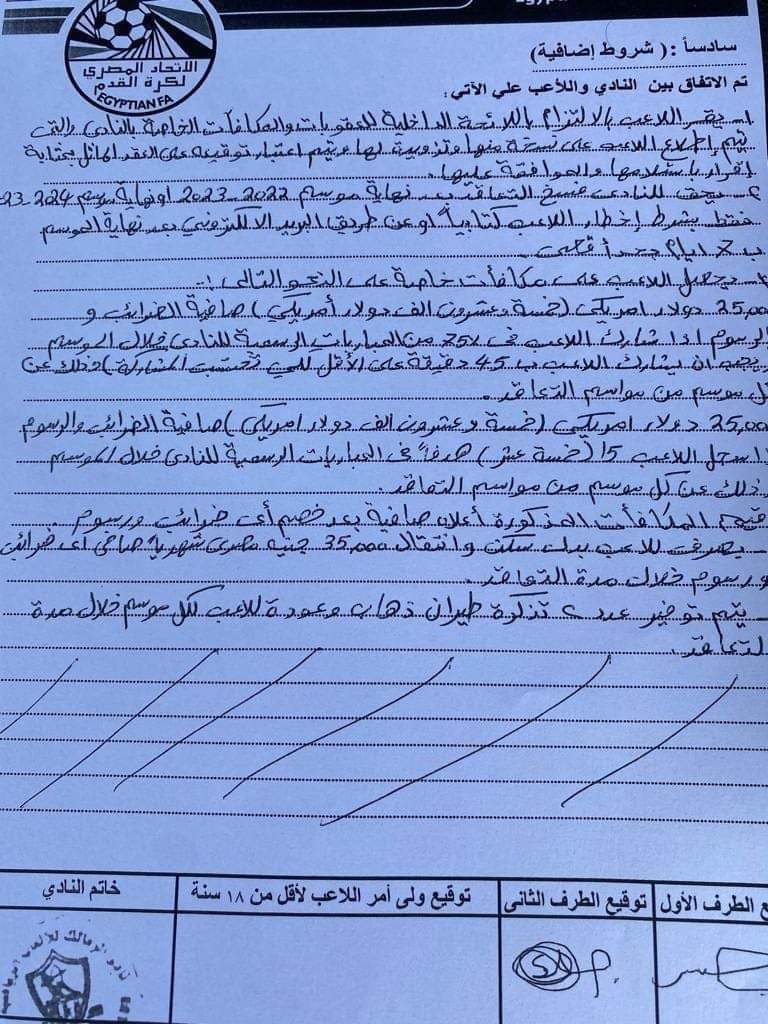 الاتحاد المصري
لكرة القدم
EGYPTIAN FA
سادساً : ( شروط إضافية )
تم الاتفاق بين النادي واللاعب علي الآتي :
١- يقر اللاعب بالالتزام باللائحة الداخلية للعقوبات والمكافآت الخاصة بالنادى والتى
يتم إطلاع اللاعب على نسخة منها وتزويده لها ويتم اعتبار توقيعه على العقد الماثل بمثابة
إقرار باستلامها والموافقة عليها.
٢- يحق للنادى فسخ التعاقد بعد نهاية موسم 2022-2023 او نهاية موسم 2024-23
فقط بشرط إخطار اللاعب كتابياً او عن طريق البريد الالكترونى بعد نهاية الموسم
ب ايام بحد أقصى.
يحصل اللاعب على مكافآت خاصة على النحو التالى :-
25,000 دولار امريكى (خمسة وعشرون الف دولار أمريكى) صافية الضرائب و
الرسوم اذا شارك اللاعب فى 75% من المباريات الرسمية للنادى خلال الموسم
يجب ان يشارك اللاعب ب 45 دقيقة على الأقل لكي تحتسب المشاركة) وذلك عن
كل موسم من مواسم التعاقد.
25,000 دولار امريكى (خمسة وعشرون الف دولار امريكى) صافية الضرائب والرسوم
اذا سجل اللاعب 15 (خمسة عشر) هدفاً فى المباريات الرسمية للنادى خلال الموسم
وذلك عن كل موسم من مواسم التعاقد.
قيمة المكافآت المذكورة أعلاه صافية بعد خصم أى ضرائب ورسوم
- يصرف للاعب بدل سكن وانتقال 35,000 جنيه مصرى شهرياً صافى أى ضرائب
ورسوم خلال مدة التعاقد.
- يتم توفير عدد ٢ تذكرة طيران ذهاب وعودة للاعب لكل موسم خلال مدة
التعاقد.
ع الطرف الأول
توقيع الطرف الثانى
توقيع ولى أمر اللاعب لأقل من ١٨ سنة
خاتم النادي
نادى الزمالك للألعاب الرياضية